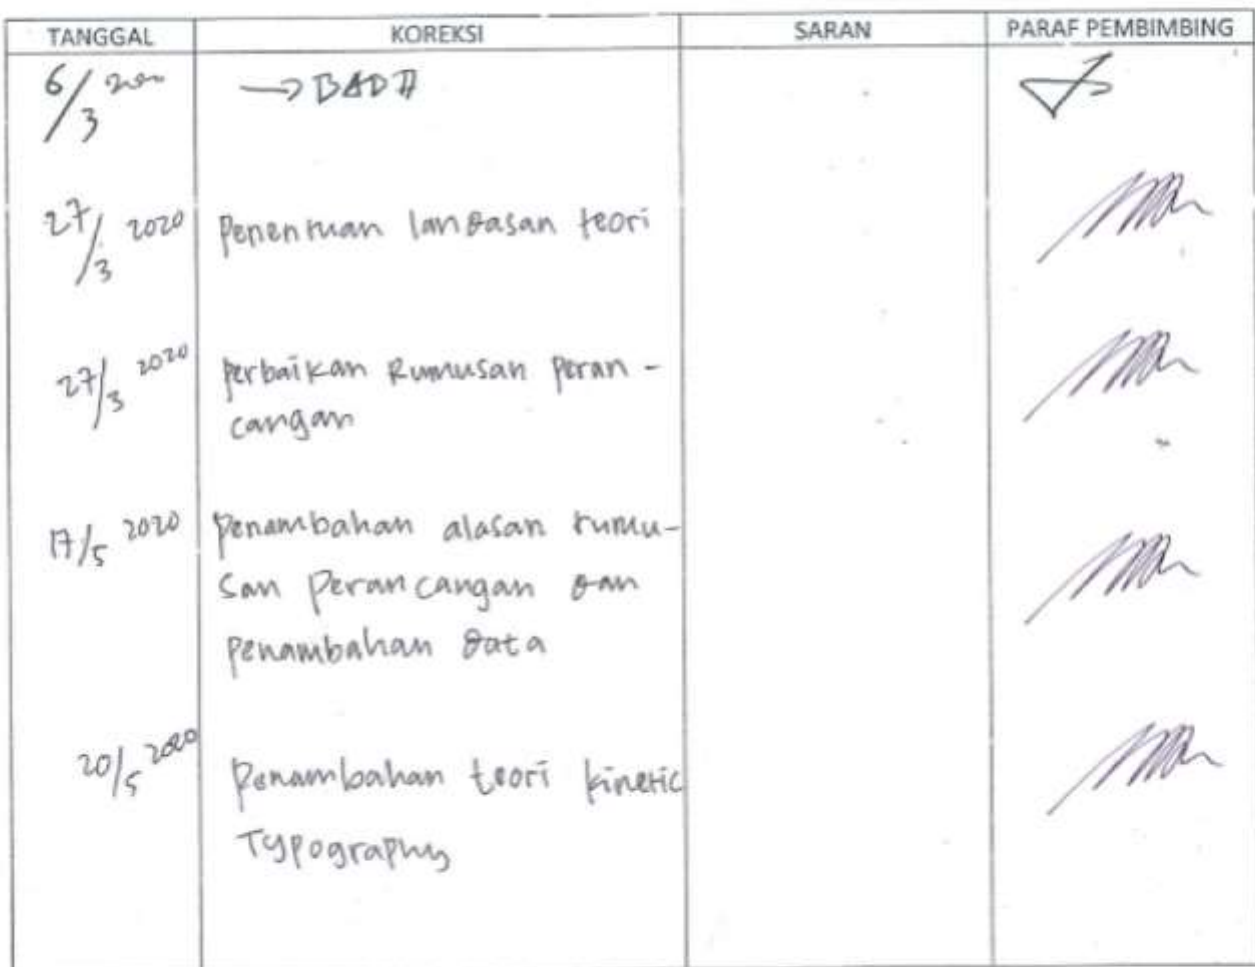 TANGGAL KOREKSI SARAN PARAF PEMBIMBING
6/3 2020 → BAB II
27/3 2020 Penentuan landasan teori
27/3 2020 perbaikan Rumusan peran-
cangan
17/5 2020 penambahan alasan rumu-
san perancangan dan
penambahan data
20/5 2020 penambahan teori kinetic
Typography